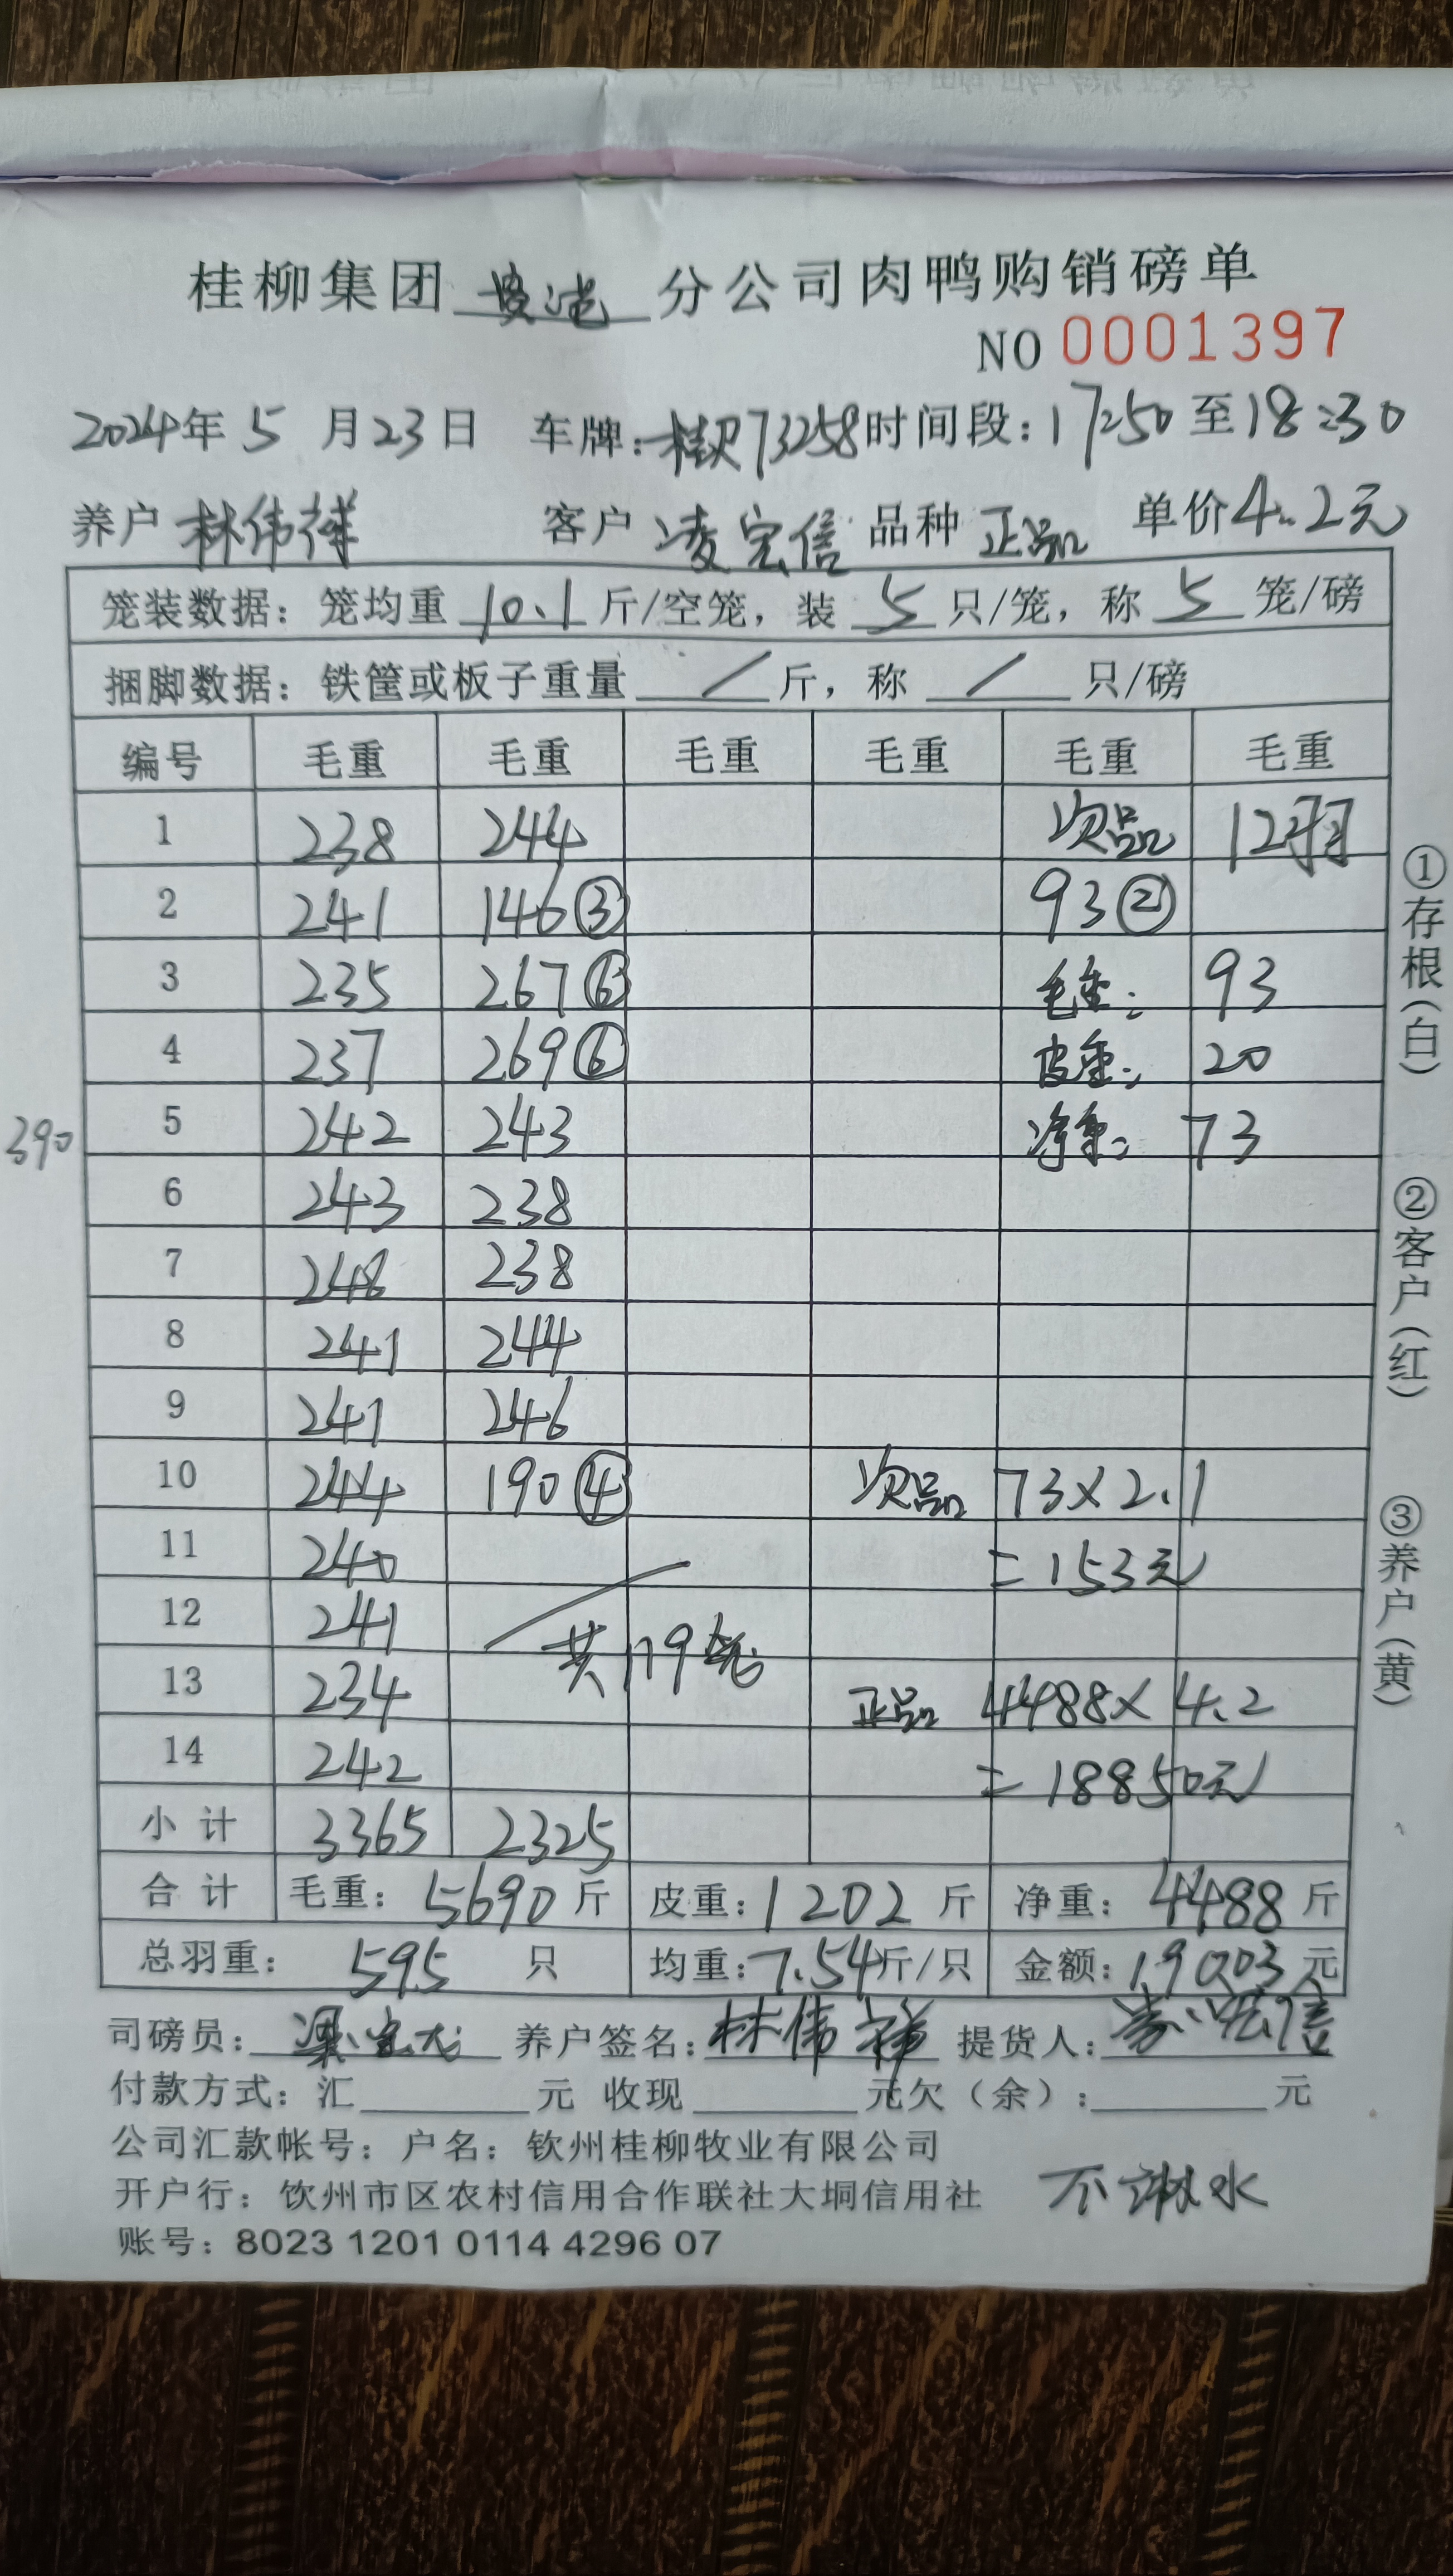 桂柳集团 贵港 分公司肉鸭购销磅单
NO 0001397
2024年 5 月 23 日 车牌: 桂R73258 时间段: 17:50 至 18:30
养户 林伟祥 客户 凌宏信 品种 正品 单价 4.2元
笼装数据: 笼均重 10.1 斤/空笼, 装 5 只/笼, 称 5 笼/磅
捆脚数据: 铁筐或板子重量 / 斤, 称 / 只/磅
编号 毛重 毛重 毛重 毛重 毛重 毛重
1 238 244 次品 12只
2 241 146③ 93②
3 235 267⑥ 毛重: 93
4 237 269⑥ 皮重: 20
5 242 243 净重: 73
390
6 243 238
7 246 238
8 241 244
9 241 246
10 244 190④ 次品 73×2.1
11 240 =153元
12 241
共119笼
13 234 正品 4488×4.2
14 242 =18850元
小计 3365 2325
合计 毛重: 5690 斤 皮重: 1202 斤 净重: 4488 斤
总羽重: 595 只 均重: 7.54 斤/只 金额: 19003 元
司磅员: 养户签名: 林伟祥 提货人:
付款方式: 汇 元 收现 元欠(余): 元
公司汇款帐号: 户名: 钦州桂柳牧业有限公司
开户行: 饮州市区农村信用合作联社大垌信用社 不淋水
账号: 8023 1201 0114 4296 07
①存根(白)
②客户(红)
③养户(黄)